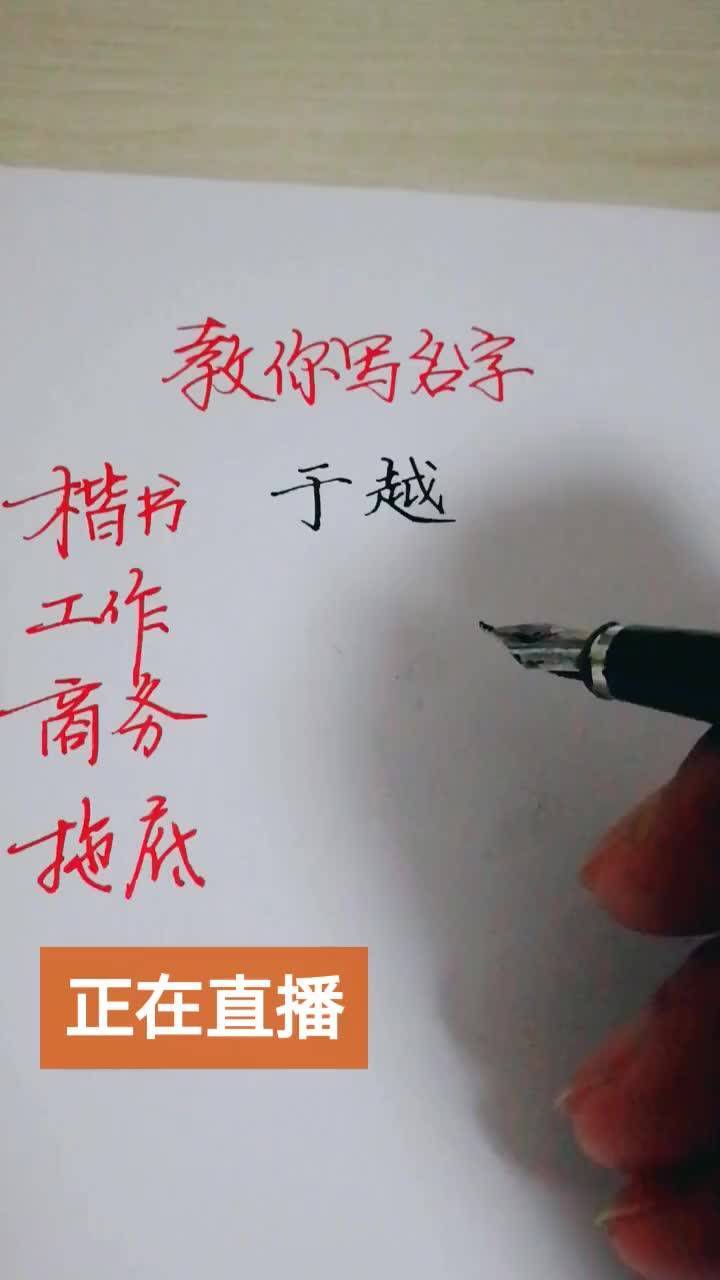 教你写名字
楷书 于越
工作
商务
拖底
正在直播